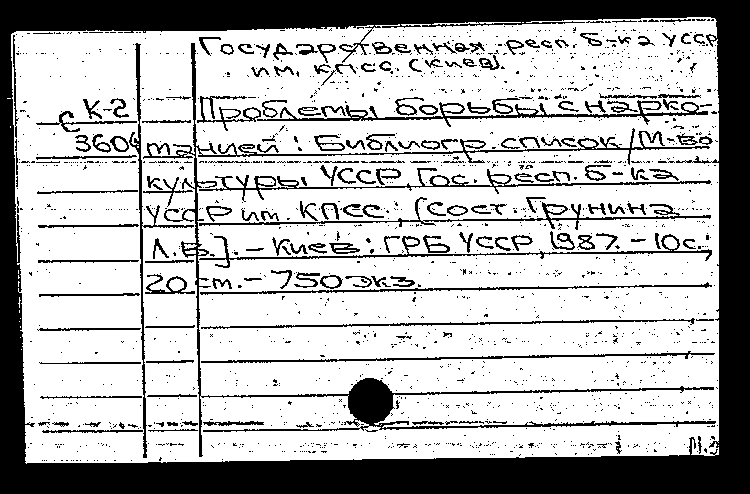 Государственная респ. б-ка УССР
им. КПСС. (Киев).
К-2
С
3606
Проблемы борьбы с нарко-
манией : Библиогр. список / М-во
культуры УССР, Гос. респ. б-ка
УССР им. КПСС ; (Сост. Грунина
Л.В.]. - Киев : ГРБ УССР, 1987. - 10 с.;
20 см. - 750 экз.